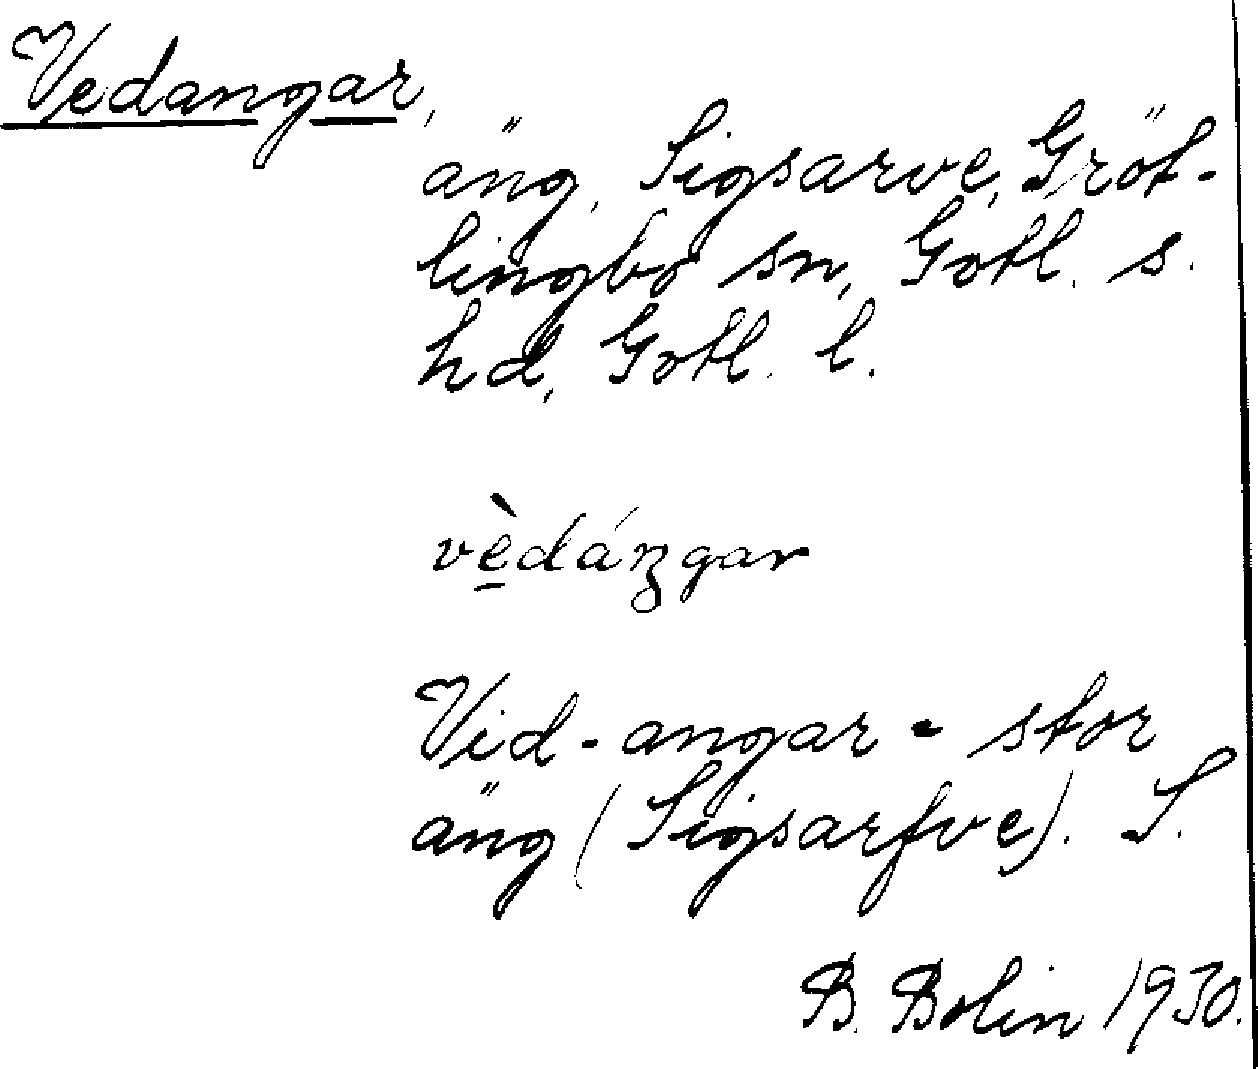 Vedangar,
äng, Sigsarve, Gröt-
lingbo sn, Gotl. s.
hd, Gotl. l.
vè̱dáŋgar
Vid-angar - stor
äng (Sigsarfve). S.
B. Bolin 1930.